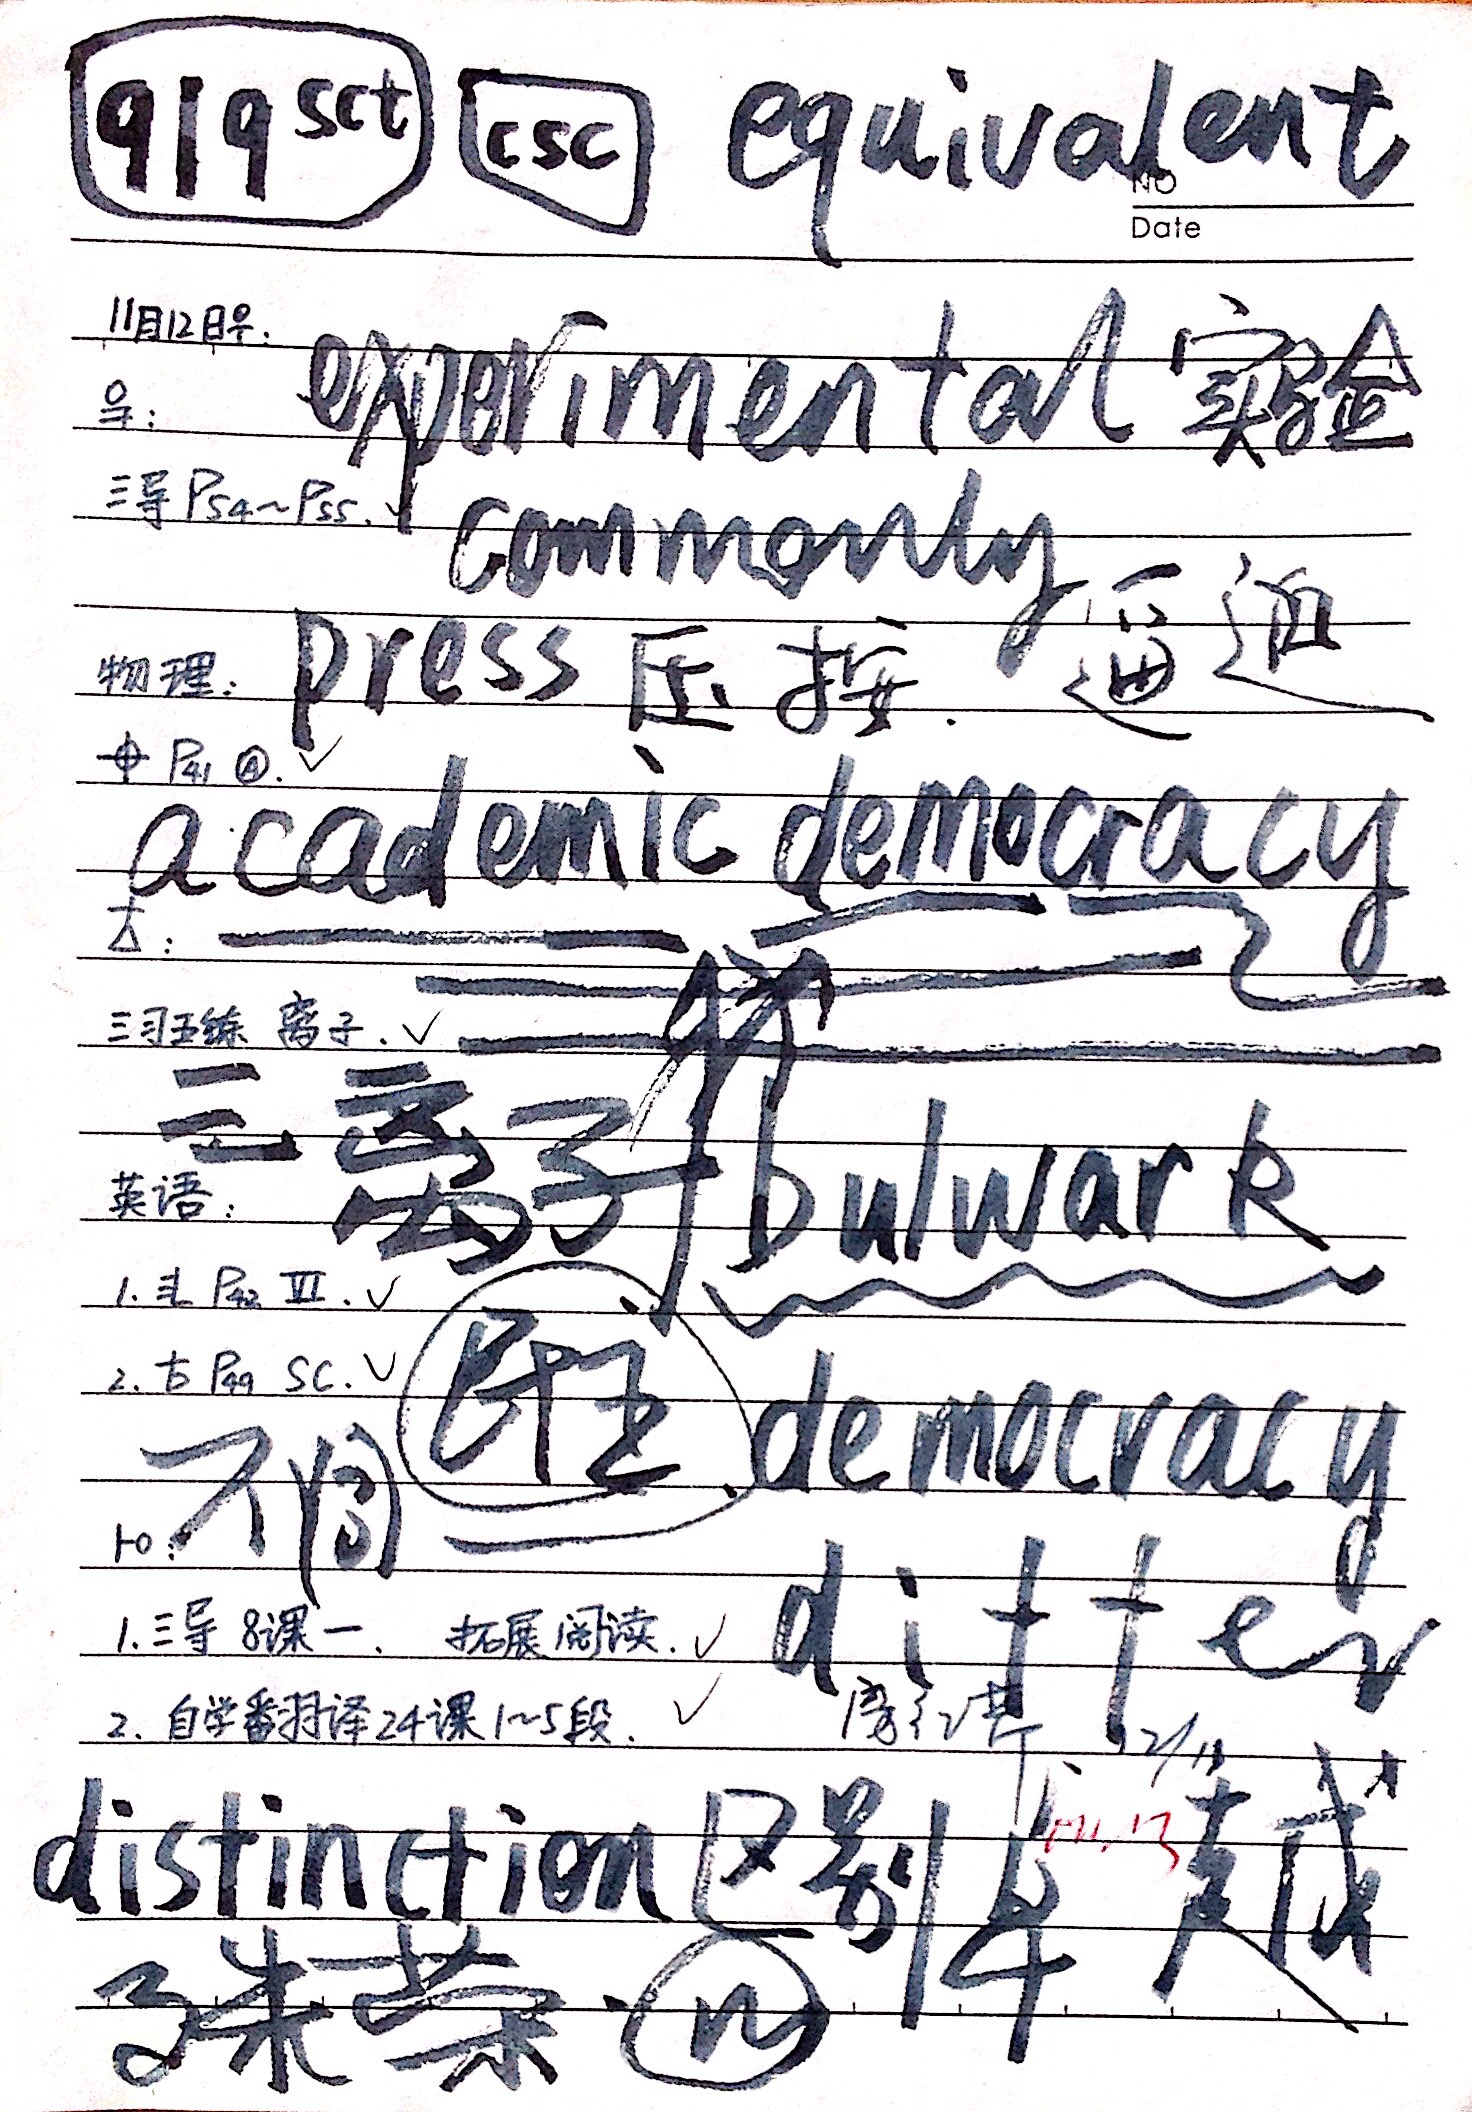 919 sct csc equivalent
NO
Date
11月12日
experimental 实验
三导 P54~P55.
commonly
物理:
press 压 按. 逼近
P41 ④.
academic democracy
三习五练 离子.
三 离子
bulwark
英语:
1. P42 VI.
2. P49 SC.
democracy
不同
differ
1.三导 8课一. 拓展阅读.
2. 自学翻译24课1~5段.
12/11
distinction 区别
殊荣. n